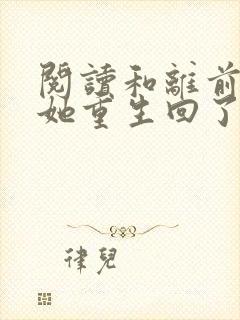 閱讀和離前
她重生回了
律兒